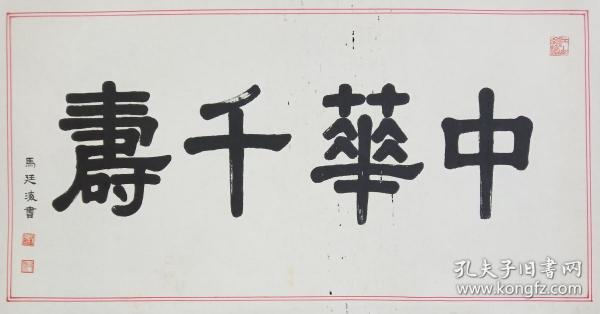 中華千壽
馬廷海書
孔夫子旧书网
www.kongfz.com